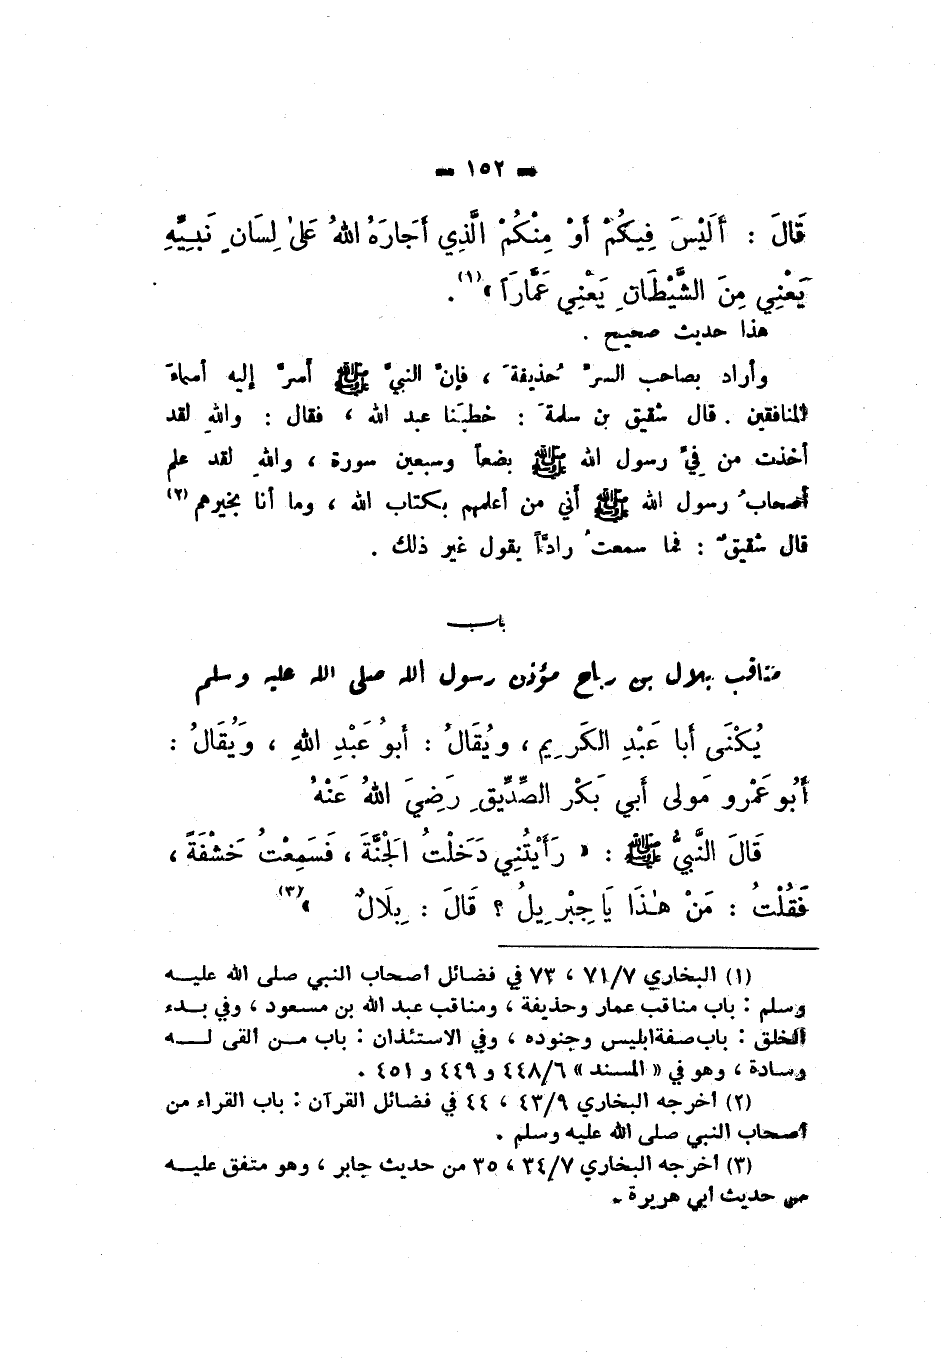 — ١٥٢ —
قَالَ : أَلَيْسَ فِيكُمْ أَوْ مِنْكُمْ الَّذِي أَجَارَهُ اللهُ عَلىٰ لِسَانِ نَبِيِّهِ
يَعْنِي مِنَ الشَّيْطَانِ يَعْنِي عَمَّارَاً »(١) .
هذا حديث صحيح .
وأراد بصاحب السرِّ حُذيفةَ ، فإنَّ النبيَّ ﷺ أسرَّ إليه أسماءَ
المنافقين . قال شقيق بن سلمةَ : خطبَنا عبد الله ، فقال : واللهِ لقد
أخذت من فِيِّ رسول الله ﷺ بضعاً وسبعين سورة ، واللهِ لقد علم
أصحابُ رسول الله ﷺ أني من أعلمهم بكتاب الله ، وما أنا بخيرهم (٢)
قال شقيقٌ : فما سمعتُ رادَّاً يقول غير ذلك .
باب
مناقب بلال بن رباح مؤذن رسول الله صلى الله عليه وسلم
يُكْنَى أبا عَبْدِ الكَرِيمِ ، ويُقَالُ : أَبوُ عَبْدِ اللهِ ، وَيُقَالُ :
أَبُو عَمْرو مَولى أَبي بَكْر الصِّدِّيقِ رَضِيَ اللهُ عَنْهُ
قَالَ النَّبيُّ ﷺ : « رَأَيْتُنِي دَخَلْتُ الجْنَّةَ ، فَسَمِعْتُ خَشْفَةً ،
فَقُلْتُ : مَنْ هٰذَا يَا جِبْرِيلُ ؟ قَالَ : بِلَالٌ »(٣)
(١) البخاري ٧١/٧ ، ٧٣ في فضائل أصحاب النبي صلى الله عليه
وسلم : باب مناقب عمار وحذيفة ، ومناقب عبد الله بن مسعود ، وفي بدء
الخلق : باب صفة ابليس وجنوده ، وفي الاستئذان : باب من ألقى له
وسادة ، وهو في « المسند » ٤٤٨/٦ و ٤٤٩ و ٤٥١ .
(٢) أخرجه البخاري ٤٣/٩ ، ٤٤ في فضائل القرآن : باب القراء من
أصحاب النبي صلى الله عليه وسلم .
(٣) أخرجه البخاري ٣٤/٧ ، ٣٥ من حديث جابر ، وهو متفق عليه
من حديث أبي هريرة .